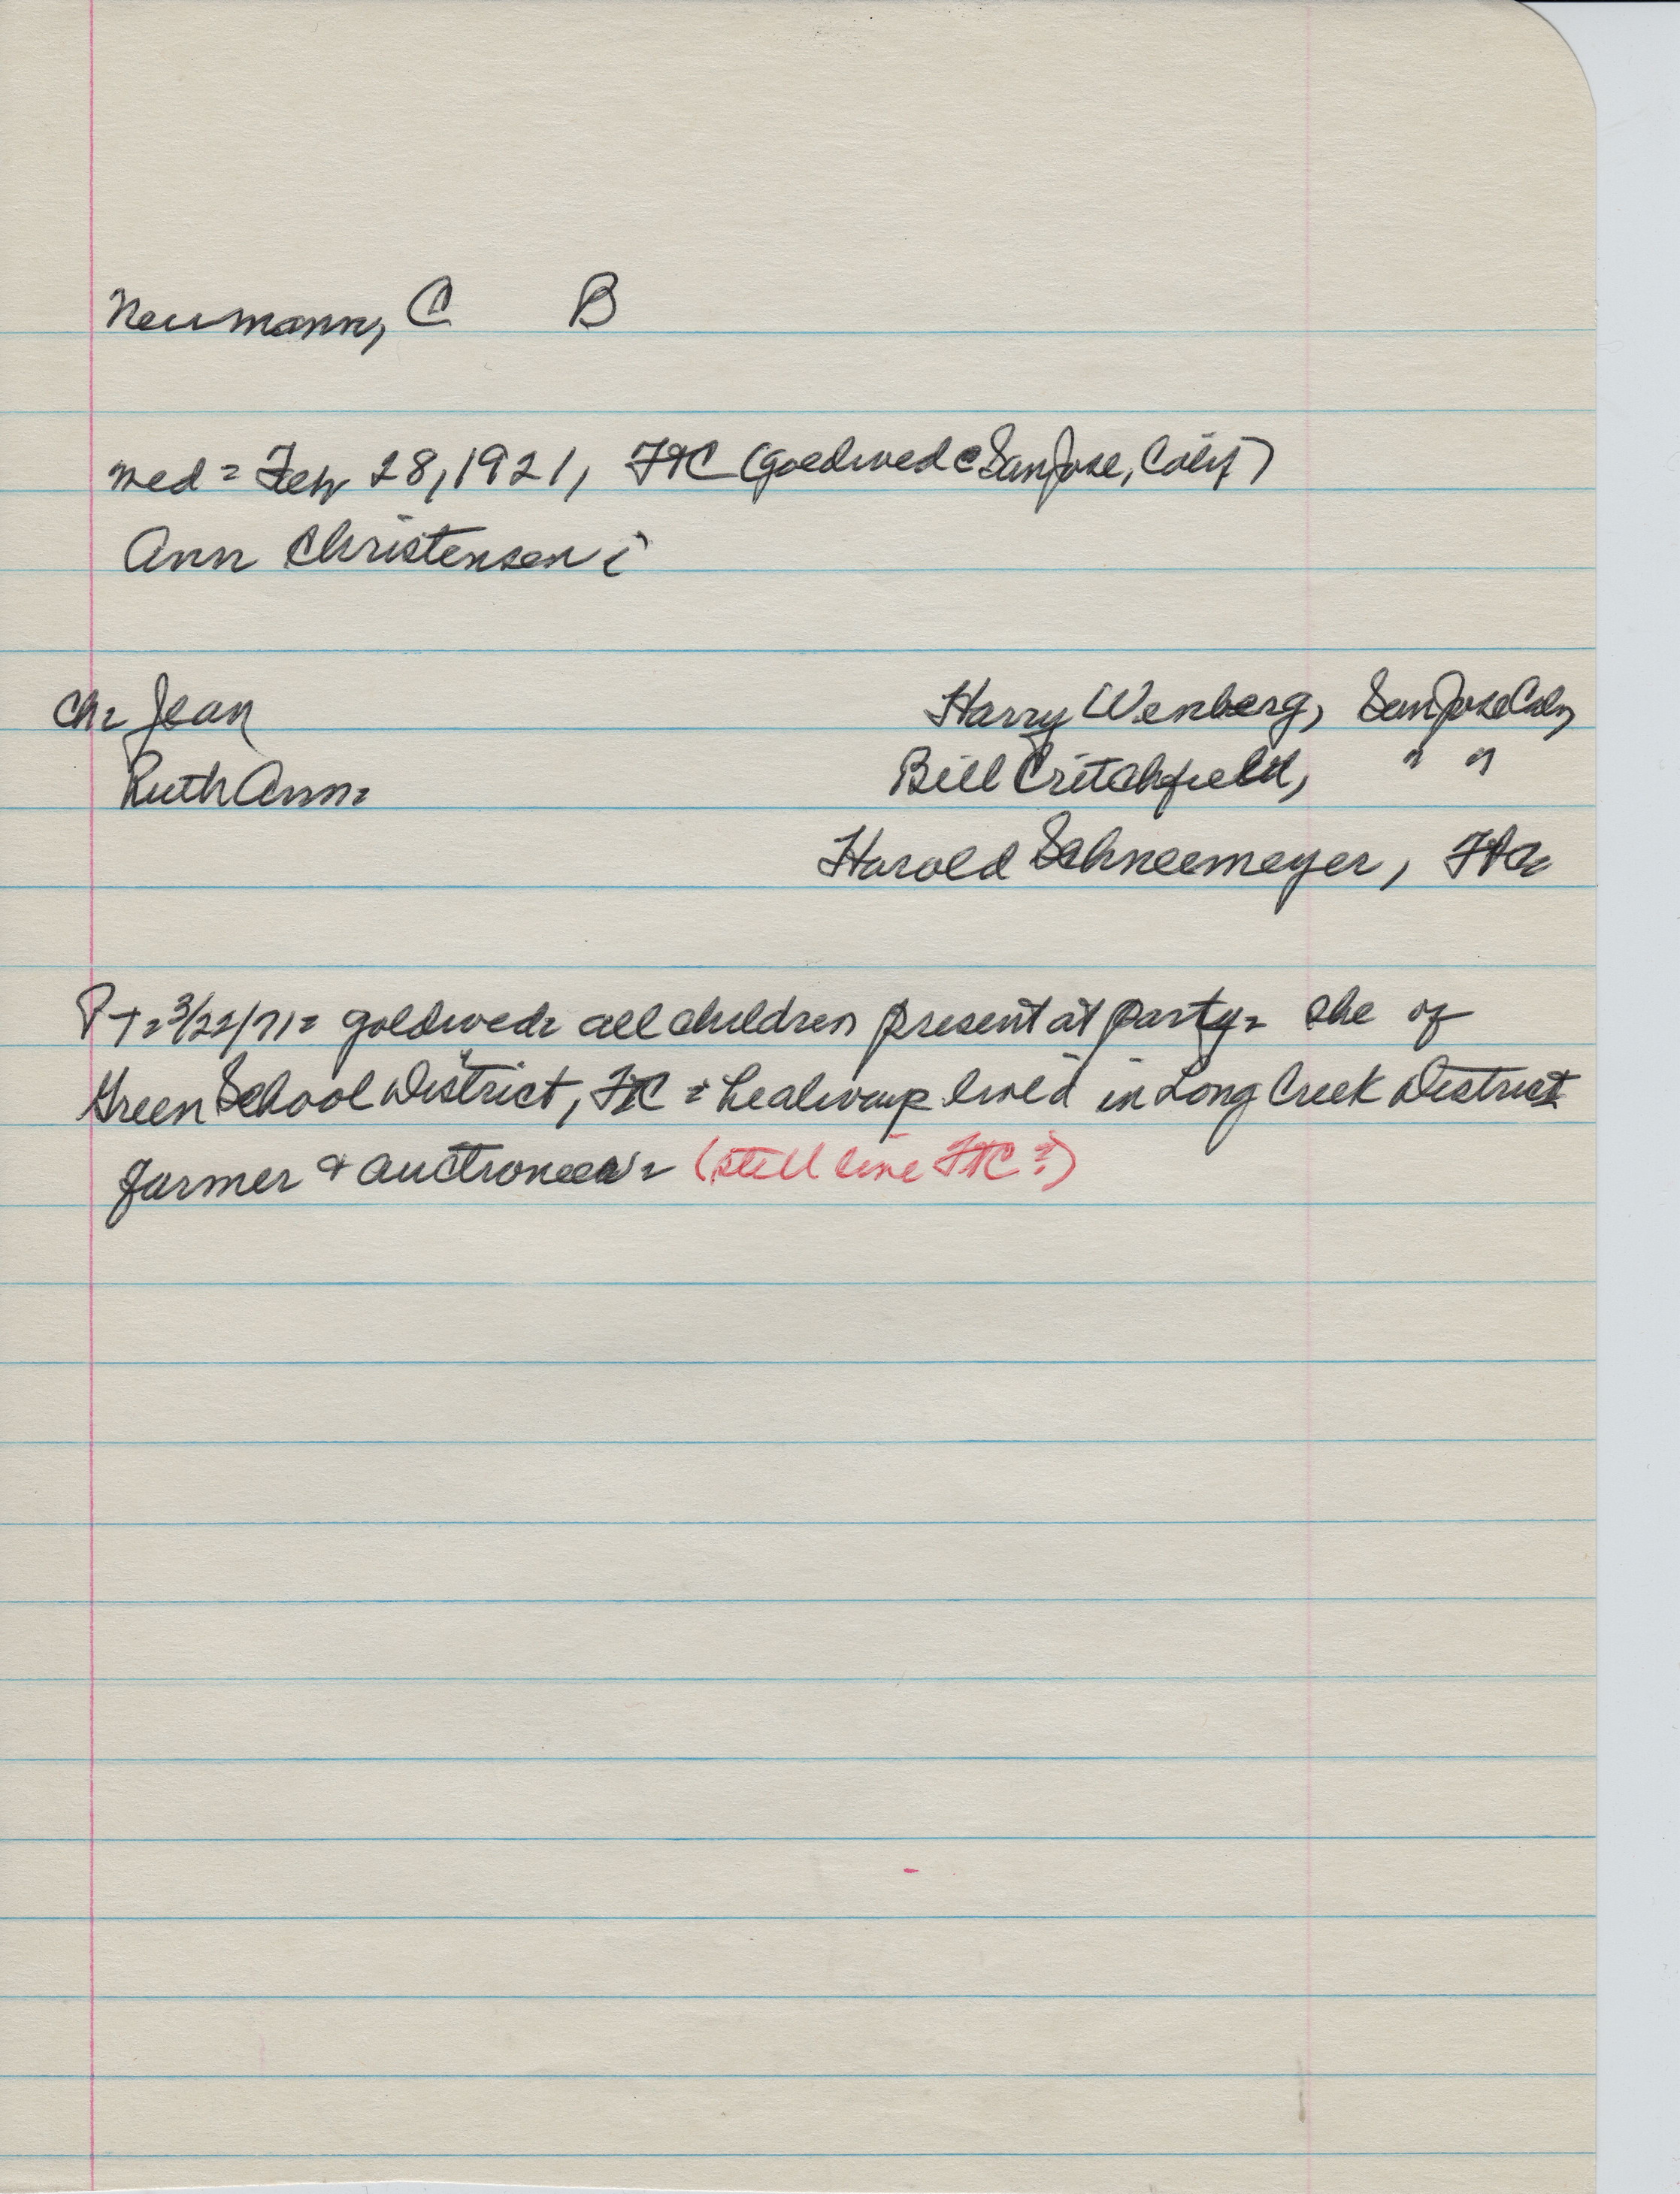 Neumann, C B
wed = Feb 28, 1921, FtC (goldwed @ San Jose, Calif)
Ann Christensen
Ch: Jean Harry Wenberg, San Jose Calif
Ruth Ann= Bill Critchfield, " "
Harold Schneemeyer, FtC
PT=3/22/71= goldwed= all children present at party= she of
Green School District, FtC = lived in Long Creek District
farmer & auctioneer= (still live FtC?)